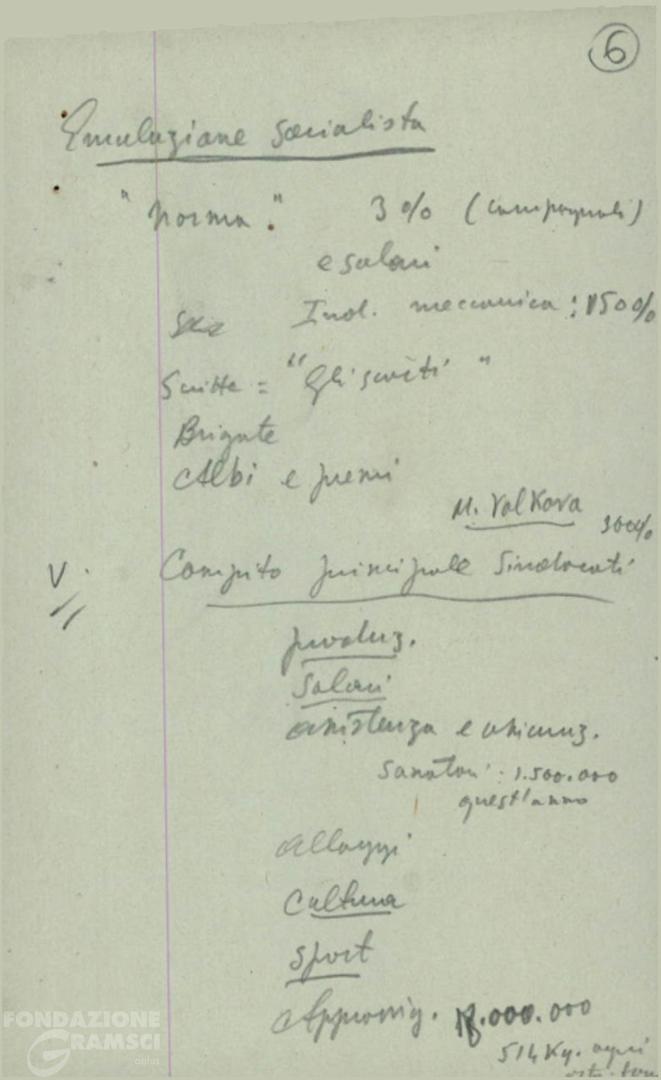 6
Emulazione socialista
"Norma". 3% (compagnoli)
e salari
Ind. meccanica: 150%
Scritte = "Gli
Brigate
Albi e premi
M. Volkova 300%
V. Compito principale Sindacati
produz.
Salari
assistenza e assicuraz.
Sanatori: 1.500.000
quest'anno
Alloggi
Cultura
Sport
Approvig. .000.000
514 Kg. ogni
FONDAZIONE
GRAMSCI
onlus